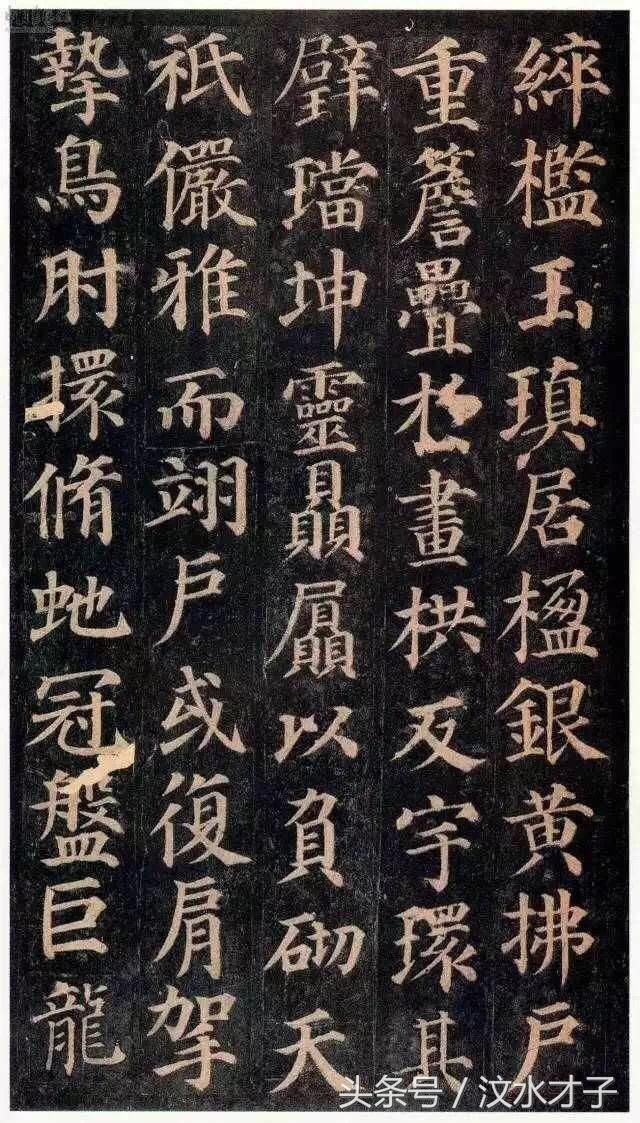 綷檻玉瑱居楹銀黃拂戶
重簷疊於畫栱反宇環其
璧璫坤靈贔屭以負砌天
祇儼雅而翊戶或復肩挐
摯鳥肘擐脩虵冠盤巨龍
头条号 / 汶水才子